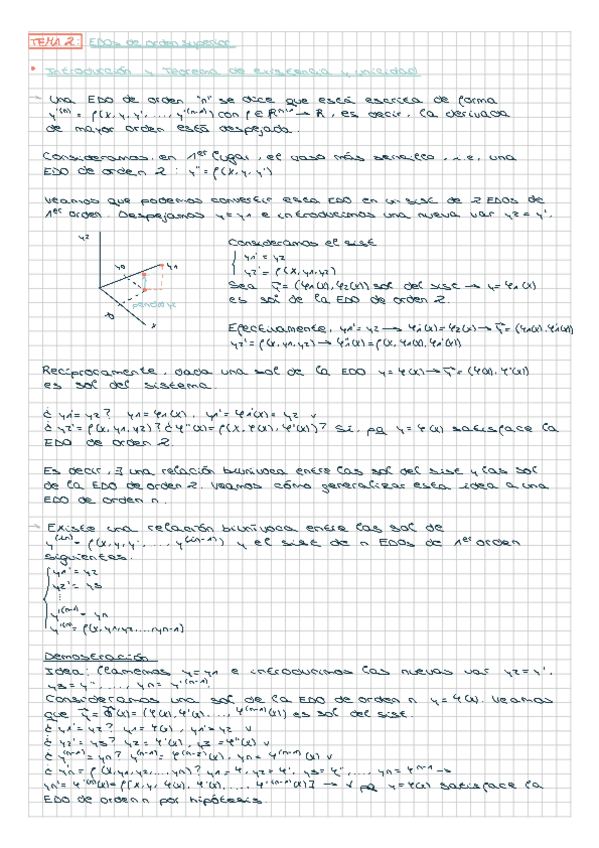 TEMA 2: EDOs de orden superior
• Introducción y Teorema de existencia y unicidad
→ Una EDO de orden "n" se dice que está escrita de forma
y⁽ⁿ⁾ = f(x, y, y', ..., y⁽ⁿ⁻¹⁾) con f ∈ Rⁿ⁺¹ → R, es decir, la derivada
de mayor orden está despejada.
Consideramos, en 1er lugar, el caso más sencillo, i.e, una
EDO de orden 2: y'' = f(x, y, y')
Veamos que podemos convertir esta EDO en un sist de 2 EDOs de
1er orden. Despejamos y = y1 e introducimos una nueva var y2 = y'.
y2
y0
y1
pendiente
x0
x
Consideramos el sist
{ y1' = y2
y2' = f(x, y1, y2)
Sea = (φ1(x), φ2(x)) sol del sist → y = φ1(x)
es sol de la EDO de orden 2.
Efectivamente, y1' = y2 → φ1'(x) = φ2(x) → = (φ1(x), φ1'(x))
y2' = f(x, y1, y2) → φ1''(x) = f(x, φ1(x), φ1'(x))
Recíprocamente, dada una sol de la EDO y = φ(x) → = (φ(x), φ'(x))
es sol del sistema.
¿ y1' = y2? y1 = φ1(x), y1' = φ1'(x) = y2 v
¿ y2' = f(x, y1, y2)? ¿ φ''(x) = f(x, φ(x), φ'(x))? Si, pq y = φ(x) satisface la
EDO de orden 2.
Es decir, ∃ una relación biunívoca entre las sol del sist y las sol
de la EDO de orden 2. Veamos cómo generalizar esta idea a una
EDO de orden n.
→ Existe una relación biunívoca entre las sol de
y⁽ⁿ⁾ = f(x, y, y', ..., y⁽ⁿ⁻¹⁾) y el sist de n EDOs de 1er orden
siguientes.
{ y1' = y2
y2' = y3
⋮
y⁽ⁿ⁻¹⁾ = yn
y⁽ⁿ⁾ = f(x, y1, y2, ..., yn-1)
Demostración
Idea: llamemos y = y1 e introducimos las nuevas var y2 = y',
y3 = y'', ..., yn = y⁽ⁿ⁻¹⁾
Consideramos una sol de la EDO de orden n y = φ(x). Veamos
que (x) = (φ(x), φ'(x), ..., φ⁽ⁿ⁻¹⁾(x)) es sol del sist.
¿ y1' = y2? y1 = φ(x), y1' = y2 v
¿ y2' = y3? y2 = φ'(x), y3 = φ''(x) v
¿ y⁽ⁿ⁻¹⁾ = yn? y⁽ⁿ⁻¹⁾ = φ⁽ⁿ⁻²⁾(x), yn = φ⁽ⁿ⁻¹⁾(x) v
¿ yn' = f(x, y1, y2, ..., yn)? y1 = φ, y2 = φ', y3 = φ'', ..., yn = φ⁽ⁿ⁻¹⁾ →
yn' = φ⁽ⁿ⁾(x) = f[x, φ(x), φ'(x), ..., φ⁽ⁿ⁻¹⁾(x)] → v pq y = φ(x) satisface la
EDO de orden n por hipótesis.